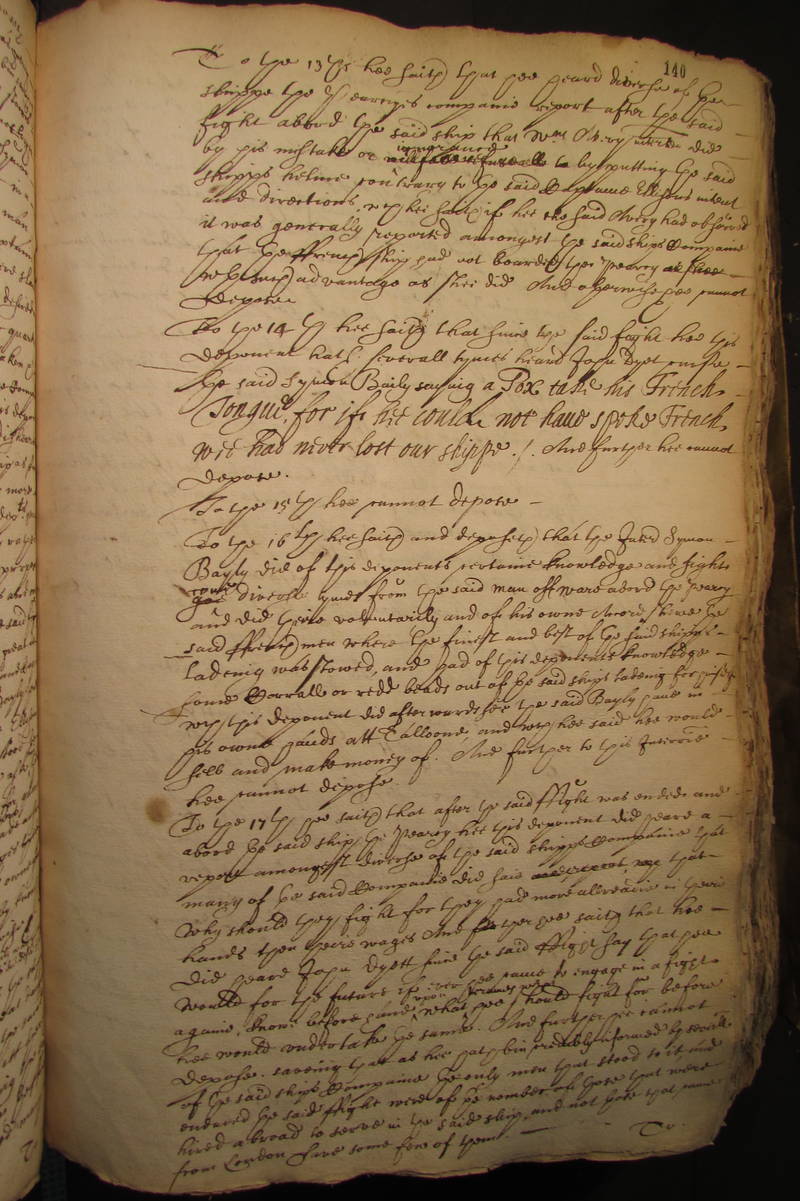 140
To the 13th hee saith that hee heard diverse of the
shippe the Pearcyes companie report after the said
fight abord the said ship that Wm Avery did
by his mistake or ignorance by putting the said
shipps helme contrary to the said Captaine intent
and directions, wch hee saith if hee the said Avery had observed
it was generally reported amongest the said ships Companie
that the ffrench ship had not boarded the Pearcy
wth such advantage as shee did And otherwise hee cannot
depose
To the 14th hee saith that since the said fight hee this
deponent hath severall tymes heard John Dyet curse
the said Symon Baily saying a Pox take his French
Tongue, for if hee could not have spoke French
wee had never lost our shippe ./. And further hee cannot
depose.
To the 15th hee cannot depose
To the 16th hee saith and deposeth that the Jated Symon
Bayly did of this deponents certaine knowledge and sight
come diverse tymes from the said man of warr abord the Pearcy
and did there voluntarily and of his owne Accord shewe the
said ffrench men where the finest and best of the said shipps
ladeing was stowed, and had of this deponents knowledge
some Corrall or redd beads out of the said ships ladeing for
wch this deponent did afterwards see the said Bayly have in
his owne hands att and wch hee said hee would
sell and make money of. And further to this Interrie
hee cannot depose.
To the 17th hee saith that after the said ffight was ended and
abord the said ship the Pearcy hee this deponent did heare a
report amongst diverse of the said shipps Companie that
many of the said Companie did saie that
why should they fight for they had more allreadie in their
hands then theire wages And further hee saith that hee
did heare John Dyett since the said ffight say that hee
would for the future if ever hee came to engage in a fight
againe, know before hand what hee should fight for before
hee would undertake the same. And further hee cannot
depose. saveing that as hee hath bin credibly informed by severall
of the said ships Companie the only men that stood to it and
endured the said ffight were of the number of those that were
hired abroad to serve in the said ship and not those that came
from London save some few of them.
To.